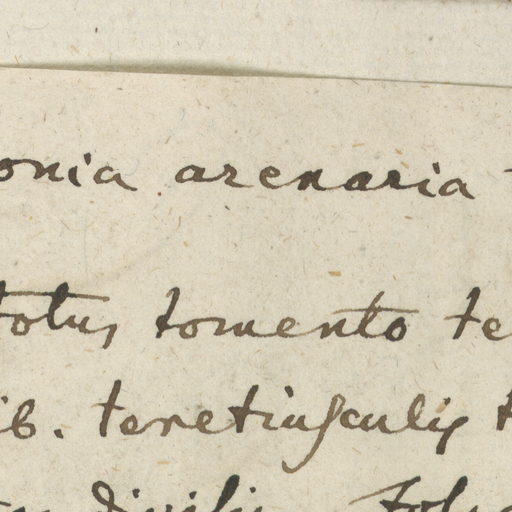 onia arenaria
totus tomento te
ib. teretiusculis t